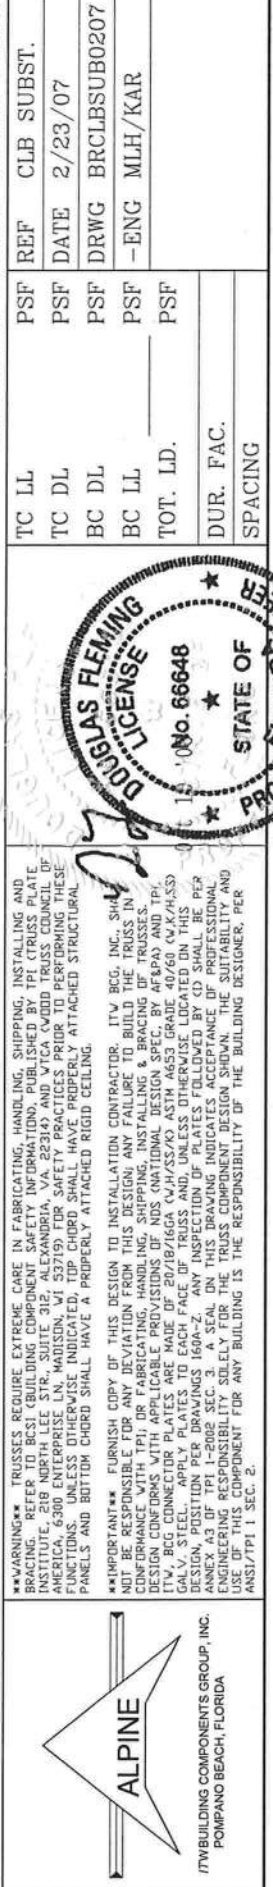 ALPINE
ITW BUILDING COMPONENTS GROUP, INC.
POMPANO BEACH, FLORIDA
**WARNING** TRUSSES REQUIRE EXTREME CARE IN FABRICATING, HANDLING, SHIPPING, INSTALLING AND
BRACING. REFER TO BCSI (BUILDING COMPONENT SAFETY INFORMATION), PUBLISHED BY TPI (TRUSS PLATE
INSTITUTE, 218 NORTH LEE STR., SUITE 312, ALEXANDRIA, VA. 22314) AND WTCA (WOOD TRUSS COUNCIL OF
AMERICA, 6300 ENTERPRISE LN, MADISON, WI 53719) FOR SAFETY PRACTICES PRIOR TO PERFORMING THESE
FUNCTIONS. UNLESS OTHERWISE INDICATED, TOP CHORD SHALL HAVE PROPERLY ATTACHED STRUCTURAL
PANELS AND BOTTOM CHORD SHALL HAVE A PROPERLY ATTACHED RIGID CEILING.
**IMPORTANT** FURNISH COPY OF THIS DESIGN TO INSTALLATION CONTRACTOR. ITW BCG, INC., SHA
NOT BE RESPONSIBLE FOR ANY DEVIATION FROM THIS DESIGN; ANY FAILURE TO BUILD THE TRUSS IN
CONFORMANCE WITH TPI; OR FABRICATING, HANDLING, SHIPPING, INSTALLING & BRACING OF TRUSSES.
DESIGN CONFORMS WITH APPLICABLE PROVISIONS OF NDS (NATIONAL DESIGN SPEC, BY AF&PA) AND TPI.
ITW BCG CONNECTOR PLATES ARE MADE OF 20/18/16GA (W,H/SS/K) ASTM A653 GRADE 40/60 (W,K/H,SS)
GALV. STEEL. APPLY PLATES TO EACH FACE OF TRUSS AND, UNLESS OTHERWISE LOCATED ON THIS
DESIGN, POSITION PER DRAWINGS 160A-Z. ANY INSPECTION OF PLATES FOLLOWED BY (I) SHALL BE PER
ANNEX A3 OF TPI 1-2002 SEC. 3. A SEAL ON THIS DRAWING INDICATES ACCEPTANCE OF PROFESSIONAL
ENGINEERING RESPONSIBILITY SOLELY FOR THE TRUSS COMPONENT DESIGN SHOWN. THE SUITABILITY AND
USE OF THIS COMPONENT FOR ANY BUILDING IS THE RESPONSIBILITY OF THE BUILDING DESIGNER, PER
ANSI/TPI 1 SEC. 2.
DOUGLAS FLEMING
LICENSE
No. 66648
STATE OF
TC LL PSF REF CLB SUBST.
TC DL PSF DATE 2/23/07
BC DL PSF DRWG BRCLBSUB0207
BC LL PSF -ENG MLH/KAR
TOT. LD. PSF
DUR. FAC.
SPACING